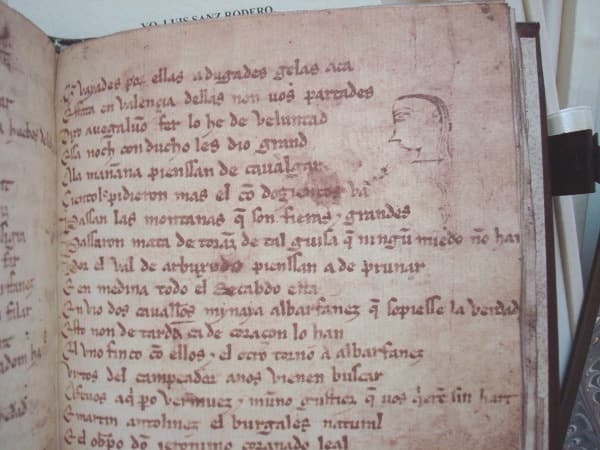 YO, LUIS SANZ RODERO
E vayades por ellas adugades gelas aca
E ffata en valençia dellas non uos partades
Dixo auegaluõ fer lo he de veluntad
Essa noch conducho les dio grand
A la mañana pienssan de caualgar
Çientol pidieron mas el cõ dozientos va
Passan las montanas q̃ son fieras ⁊ grandes
Passaron mata de toranz de tal guisa q̃ ningũ miedo nõ han
Por el val de arbuxedo pienssan a de prunar
E en medina todo el Recabdo esta
Enuio dos cauallos mynaya albarfanez q̃ sopiesse la verdad
Esto non de tarda ca de coraçon lo han
El vno finco cõ ellos ⁊ el otro torno a albarfanez
Virtos del campeador anos vienen buscar
Afeuos aq̃ po vermuez ⁊ muño gustioz q̃ uos q̃eren sin hart
E martin antolinez el burgales natural
E el obpo dõ ieronimo coranado leal